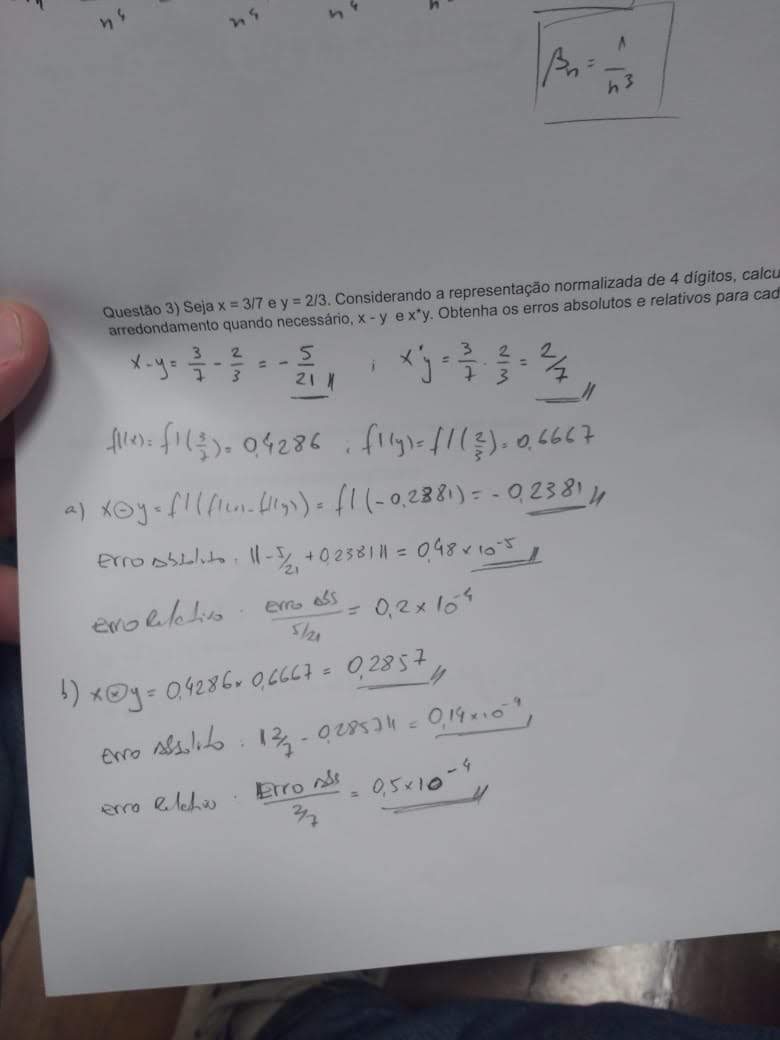 n⁴ n⁴ n⁴ n
βn = 1/n³
Questão 3) Seja x = 3/7 e y = 2/3. Considerando a representação normalizada de 4 dígitos, calcu
arredondamento quando necessário, x - y e x*y. Obtenha os erros absolutos e relativos para cad
x-y = 3/7 - 2/3 = - 5/21 ; x*y = 3/7 · 2/3 = 2/7
fl(x) = fl(3/7) = 0,4286 ; fl(y) = fl(2/3) = 0,6667
a) x⊖y = fl(fl(x) - fl(y)) = fl(-0,2381) = -0,2381
Erro absoluto : |-5/21 + 0,2381| = 0,48 × 10⁻⁵
erro relativo : erro abs / 5/21 = 0,2 × 10⁻⁴
b) x⊗y = 0,4286 × 0,6667 = 0,2857
erro absoluto : |2/7 - 0,2857| = 0,14 × 10⁻⁴
erro relativo : Erro abs / 2/7 = 0,5 × 10⁻⁴